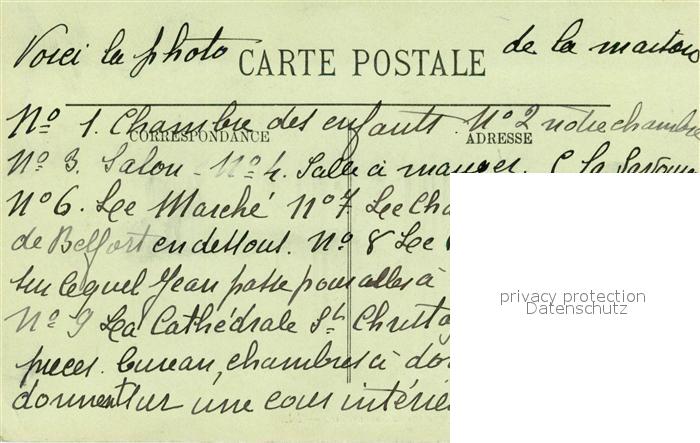 Voici la photo CARTE POSTALE de la maison
No 1. Chambre des enfants. No 2 notre chambre
CORRESPONDANCE ADRESSE
No 3. Salon - No 4. Salle à manger. la
No 6. Le Marché No 7. Le
de Belfort en dessous. No 8 Le
sur lequel Jean passe pour aller à
No 9 La Cathédrale St
pieces. bureau, chambres à
donnent sur une cour
privacy protection
Datenschutz